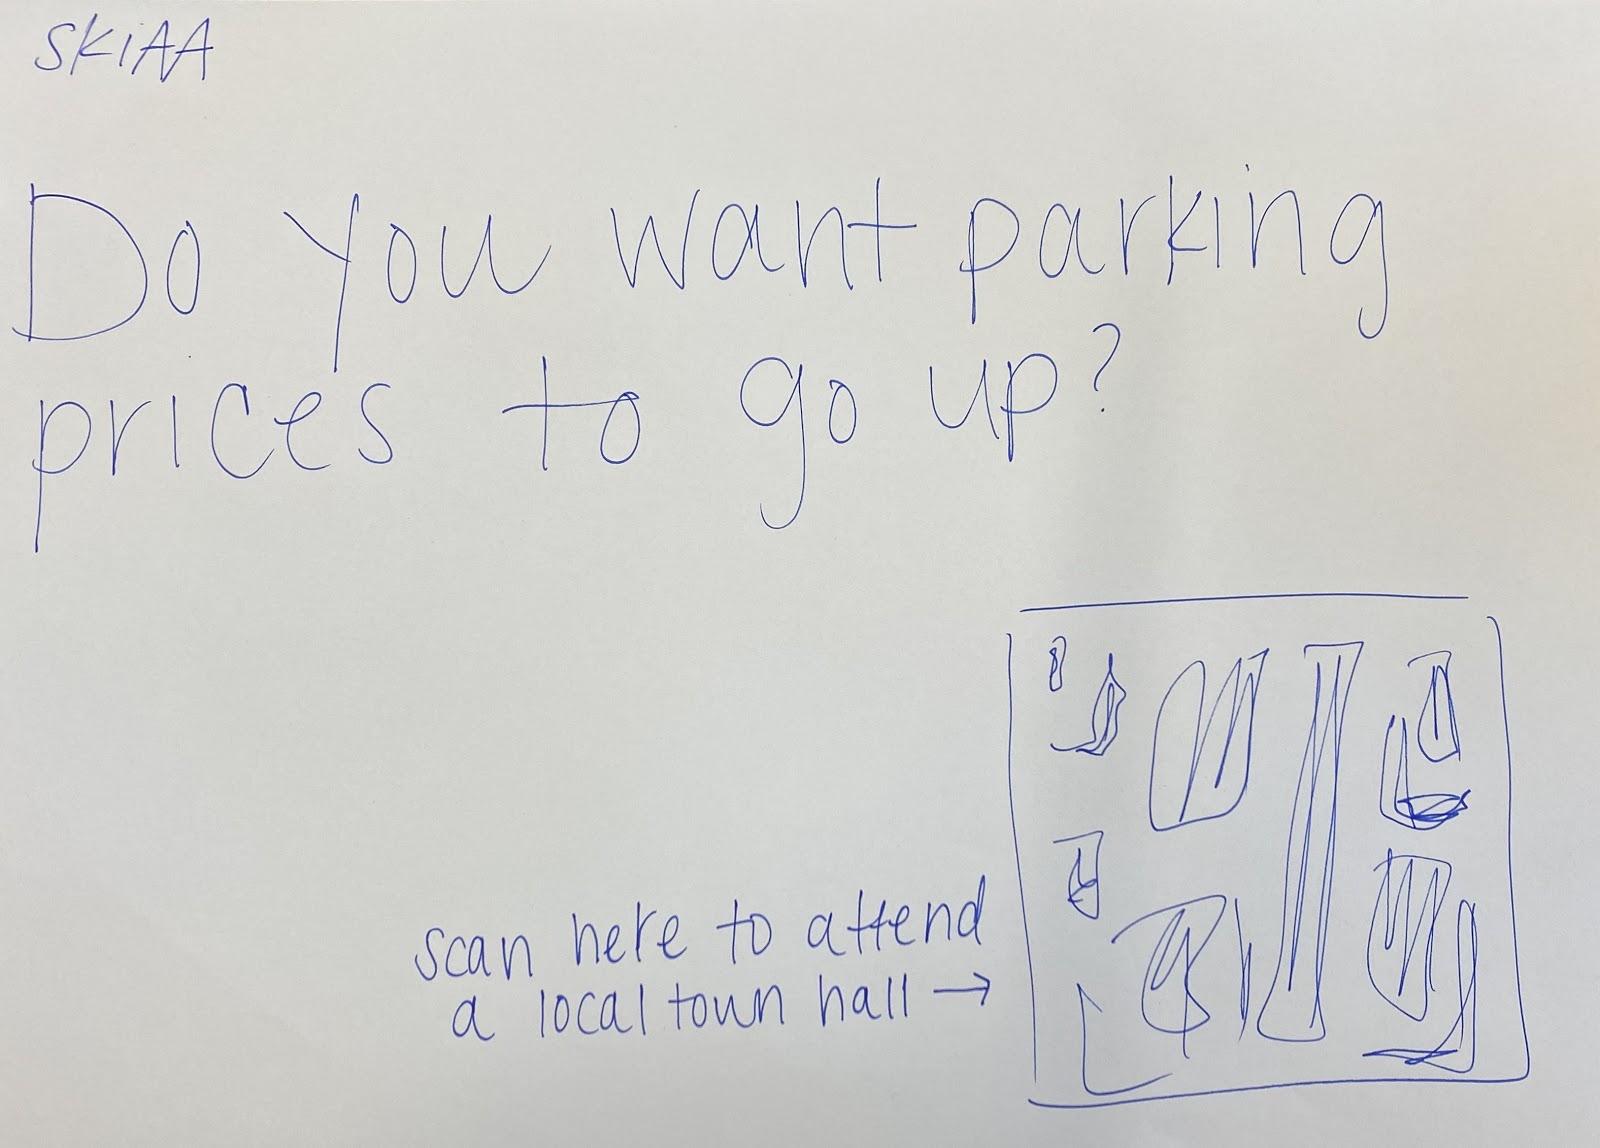 SKiAA
Do you want parking
prices to go up?
scan here to attend
a local town hall →